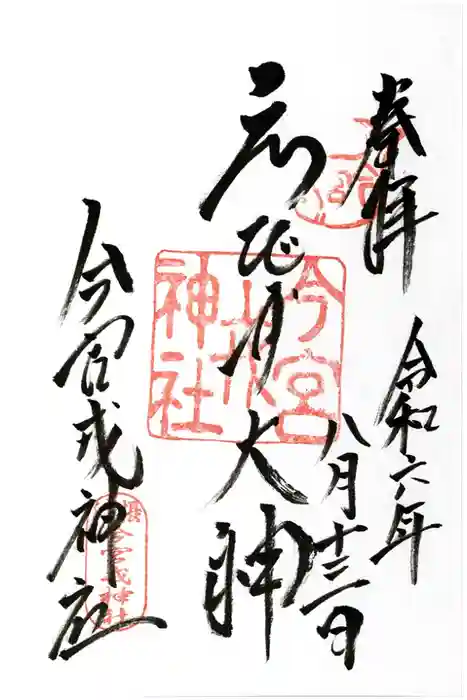 奉拝
令和六年
八月十三日
えびす大神
今宮戎神社
今宮戎神社
今宮戎神社